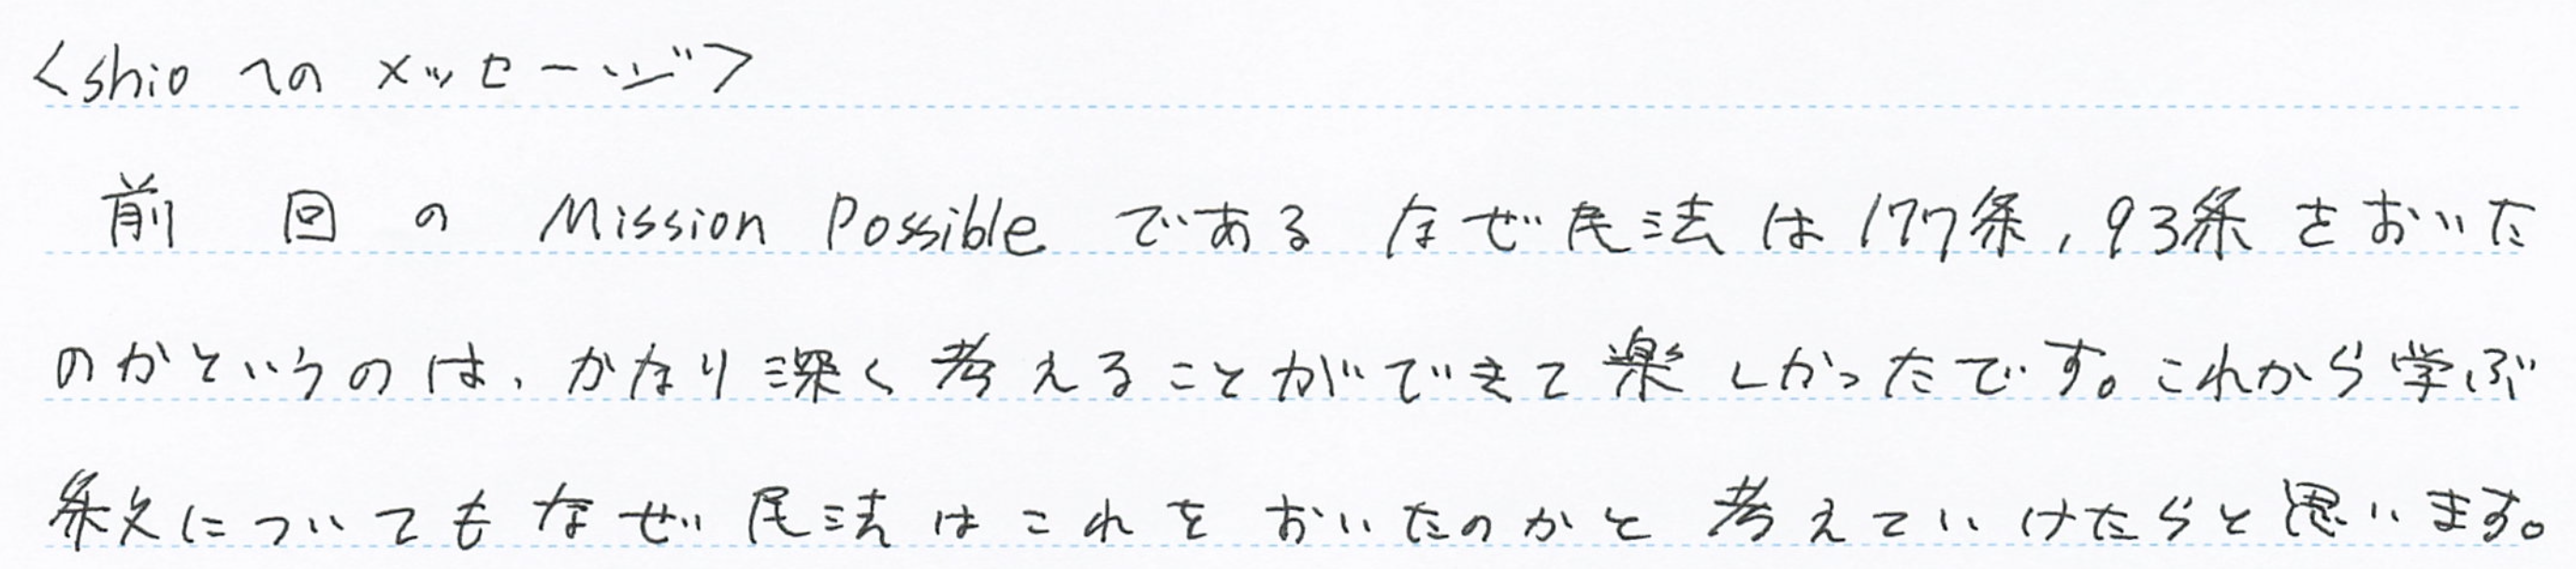 <shioへのメッセージ>
前回のMission Possibleであるなぜ民法は177条,93条をおいた
のかというのは、かなり深く考えることができて楽しかったです。これから学ぶ
条文についてもなぜ民法はこれをおいたのかと考えていけたらと思います。